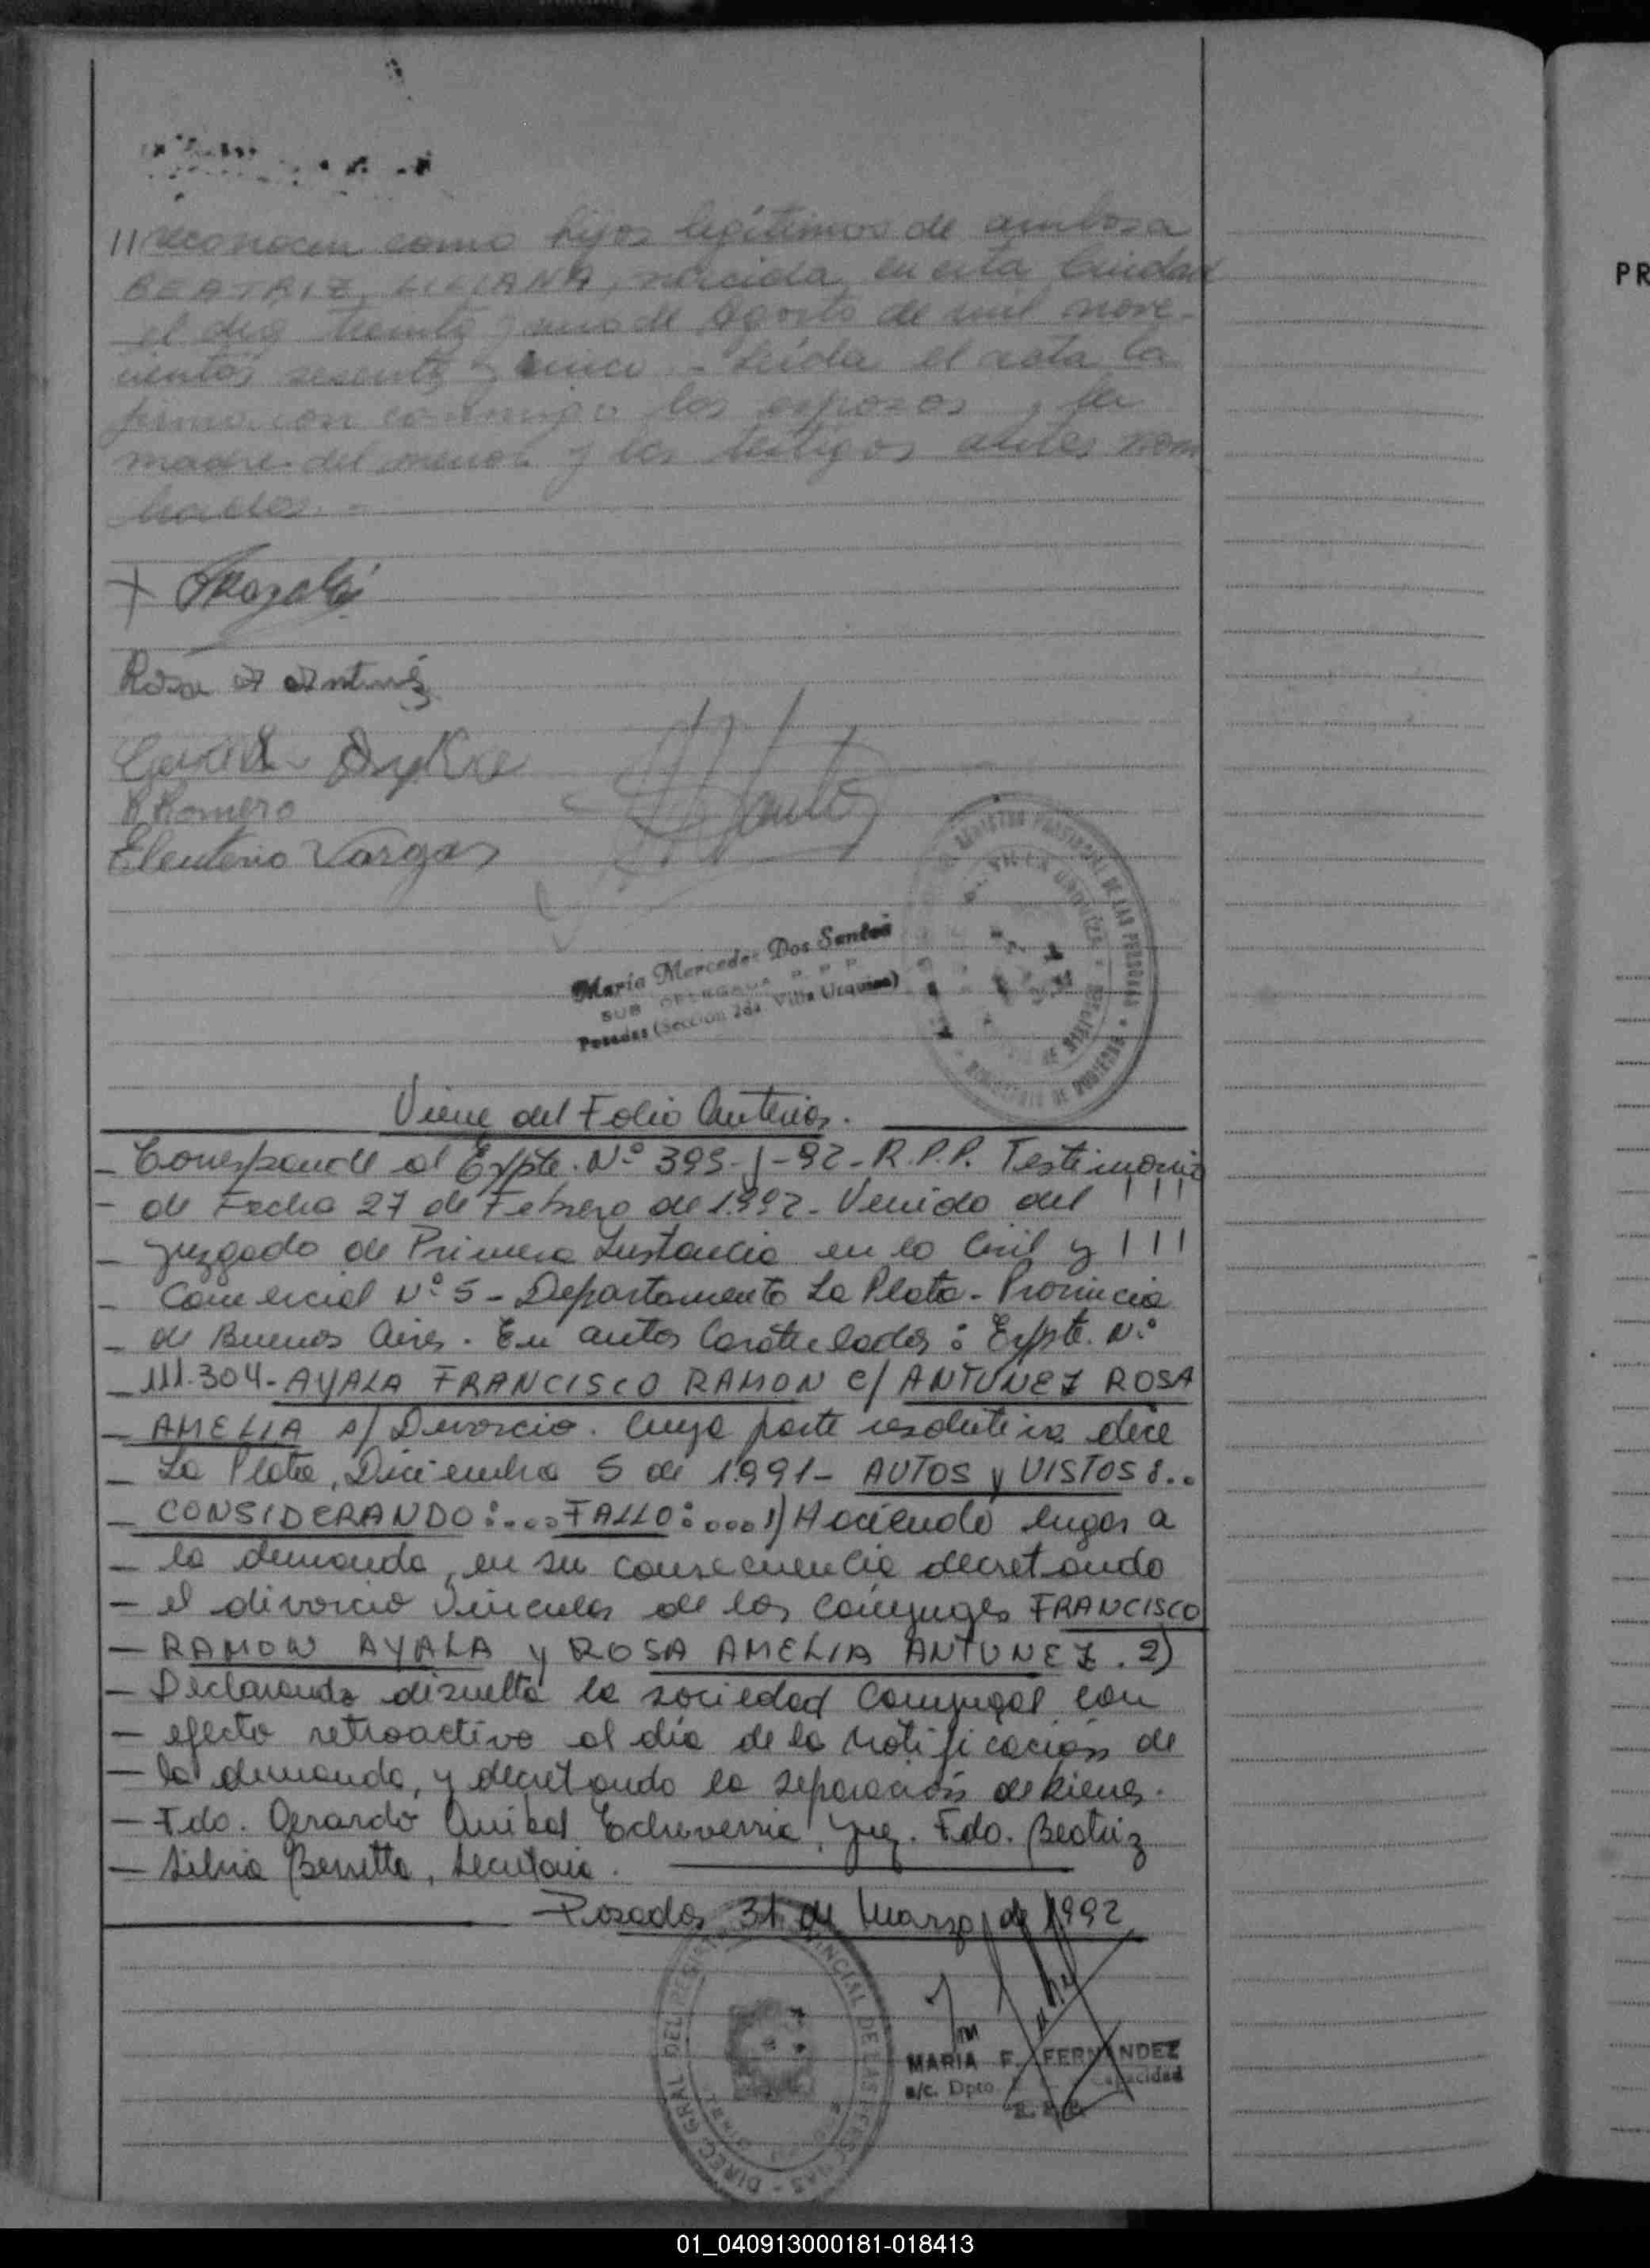 // reconocen como hijos legítimos de ambos a
BEATRIZ LILIANA, nacida en esta Ciudad
el día treinta y uno de Agosto de mil nove-
cientos sesenta y cinco - Leída el acta la
firman con conmigo los esposos y la
madre del menor y los testigos antes nom
brados. -
+
Rosa A Antunez
R Romero
Eleuterio Vargas
Maria Mercedes Dos Santos
SUB DELEGADA R. P. P.
Posadas (Sección 2da. Villa Urquiza)
Viene del Folio Anterior.
- Corresponde al Expte. Nº 395-J-92-R.P.P. Testimonio
- de Fecha 27 de Febrero de 1.992- Venido del
- Juzgado de Primera Instancia en lo Civil y
- Comercial Nº 5 - Departamento La Plata - Provincia
- de Buenos Aires. En autos Caratulados: Expte. Nº
- 111.304- AYALA FRANCISCO RAMON C/ ANTUNEZ ROSA
- AMELIA s/ Divorcio. Cuya parte resolutiva dice
- La Plata, Diciembre 5 de 1.991- AUTOS y VISTOS:..
- CONSIDERANDO:...FALLO:...1) Haciendo lugar a
- la demanda, en su consecuencia decretando
- el divorcio Vincular de los Cónyuges FRANCISCO
- RAMON AYALA y ROSA AMELIA ANTUNEZ. 2)
- Declarando disuelta la sociedad Conyugal con
- efecto retroactivo al día de la notificación de
- la demanda, y decretando la separación de bienes.
- Fdo. Gerardo Anibal Echeverria, Juez. Fdo. Beatriz
- Silvia Berretta, Secretaria.
Posadas 31 de Marzo de 1992
MARIA F. FERNANDEZ
a/c. Dpto
PR
01_040913000181-018413